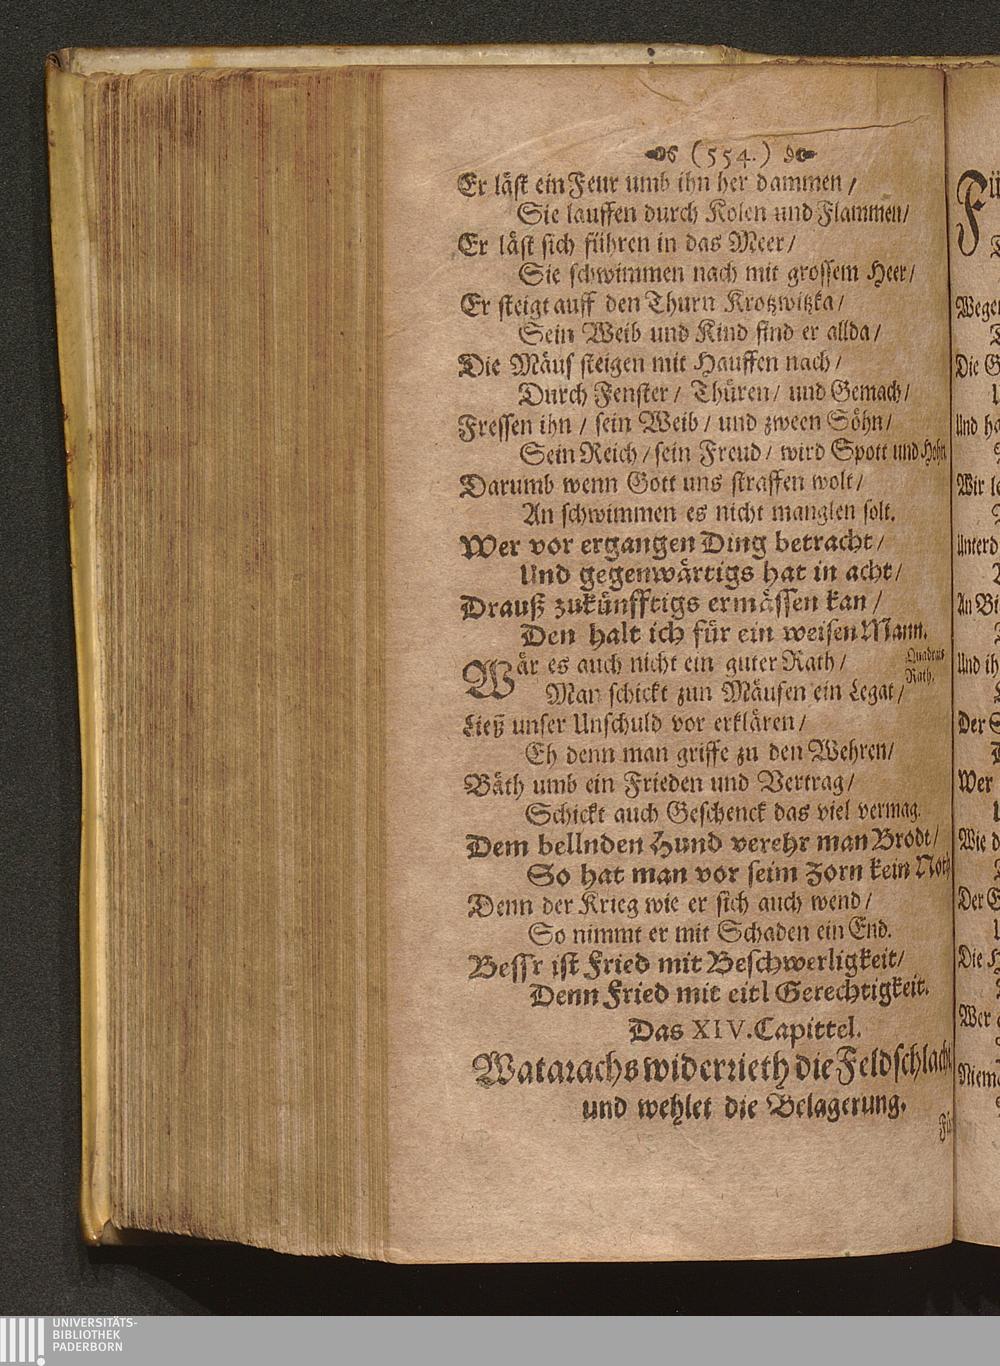 (554.)
Er läst ein Feur umb ihn her dammen /
Sie lauffen durch Kolen und Flammen /
Er läst sich führen in das Meer /
Sie schwimmen nach mit grossem Heer /
Er steigt auff den Thurn Krotzwitzka /
Sein Weib und Kind sind er allda /
Die Mäus steigen mit Hauffen nach /
Durch Fenster / Thüren / und Gemach /
Fressen ihn / sein Weib / und zween Söhn /
Sein Reich / sein Freud / wird Spott und Hohn
Darumb wenn Gott uns straffen wolt /
An schwimmen es nicht manglen solt.
Wer vor ergangen Ding betracht /
Und gegenwärtigs hat in acht /
Drauß zukünfftigs ermässen kan /
Den halt ich für ein weisen Mann.
Wär es auch nicht ein guter Rath /
Quadrats
Rath.
Man schickt zun Mäusen ein Legat /
Ließ unser Unschuld vor erklären /
Eh denn man griffe zu den Wehren /
Bäth umb ein Frieden und Vertrag /
Schickt auch Geschenck das viel vermag.
Dem bellnden Hund verehr man Brodt /
So hat man vor seim Zorn kein Noth
Denn der Krieg wie er sich auch wend /
So nimmt er mit Schaden ein End.
Bess'r ist Fried mit Beschwerligkeit /
Denn Fried mit eitl Gerechtigkeit.
Das XIV. Capittel.
Watarachs widerrieth die Feldschlacht
und wehlet die Belagerung.
Fü
Wege
Die G
Und ha
Wir le
Unterd
An Bi
Und ih
Der S
Wer
Wie d
Der E
Die H
Wer
Niem
UNIVERSITÄTS-
BIBLIOTHEK
PADERBORN